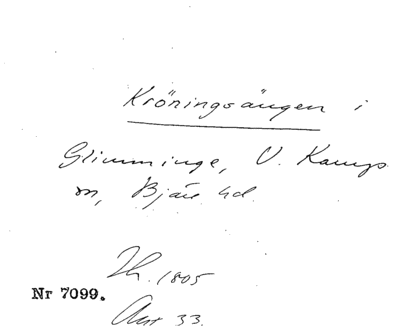 Kröningsängen i
Glimminge, V. Karups
sn, Bjäre hd.
Th. 1805
Nr 7099.
Akt 33.